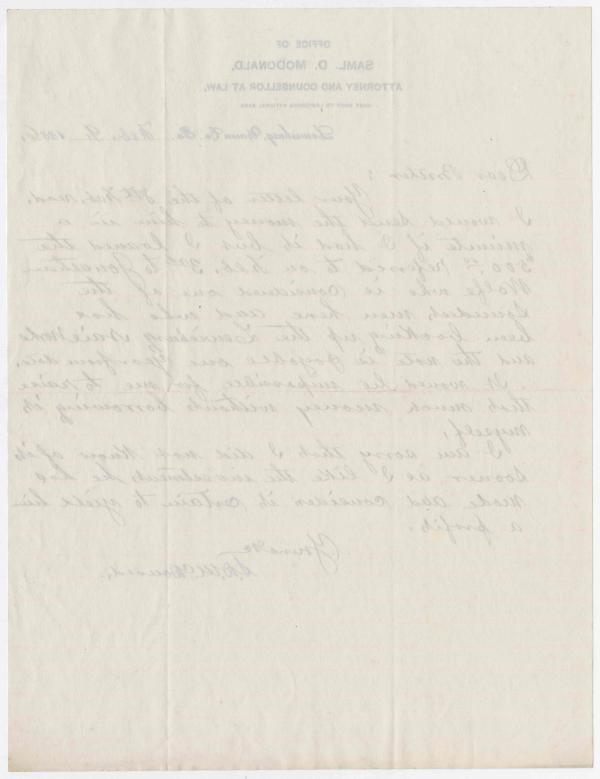 OFFICE OF
SAML. D. McDONALD,
ATTORNEY AND COUNSELLOR AT LAW,
NEXT DOOR TO LEWISBURG NATIONAL BANK
Lewisburg, Union Co. Pa. Feb. 9, 1886.
Dear Brother:
Your letter of the 8th Inst. recd.
I would send the money to him in a
minute if I had it but I loaned the
$500.00 referred to on Feb. 3rd to Jonathan
Wolfe who is considered one of the
soundest men here and who has
been booking up the Lewisburg
and the note is payable one year from date.
It would be impossible for me to raise
that much money without borrowing it
myself,
I am sorry that I did not know of it
sooner as I like the investment he has
made and consider it certain to yield him
a profit.
Yours &c
S. D. McDonald.